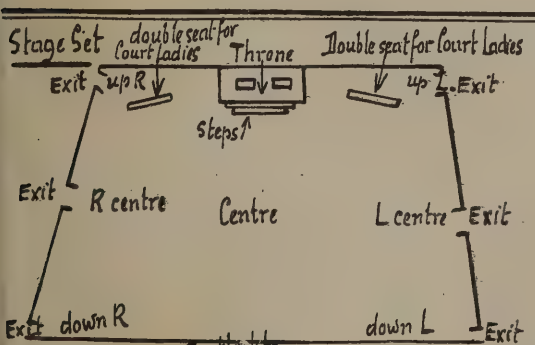 Stage Set
double seat for
Court Ladies
Throne
Double seat for Court Ladies
Exit
up R
up L.
Exit
steps
Exit
R centre
Centre
L centre
Exit
Exit
down R
down L
Exit